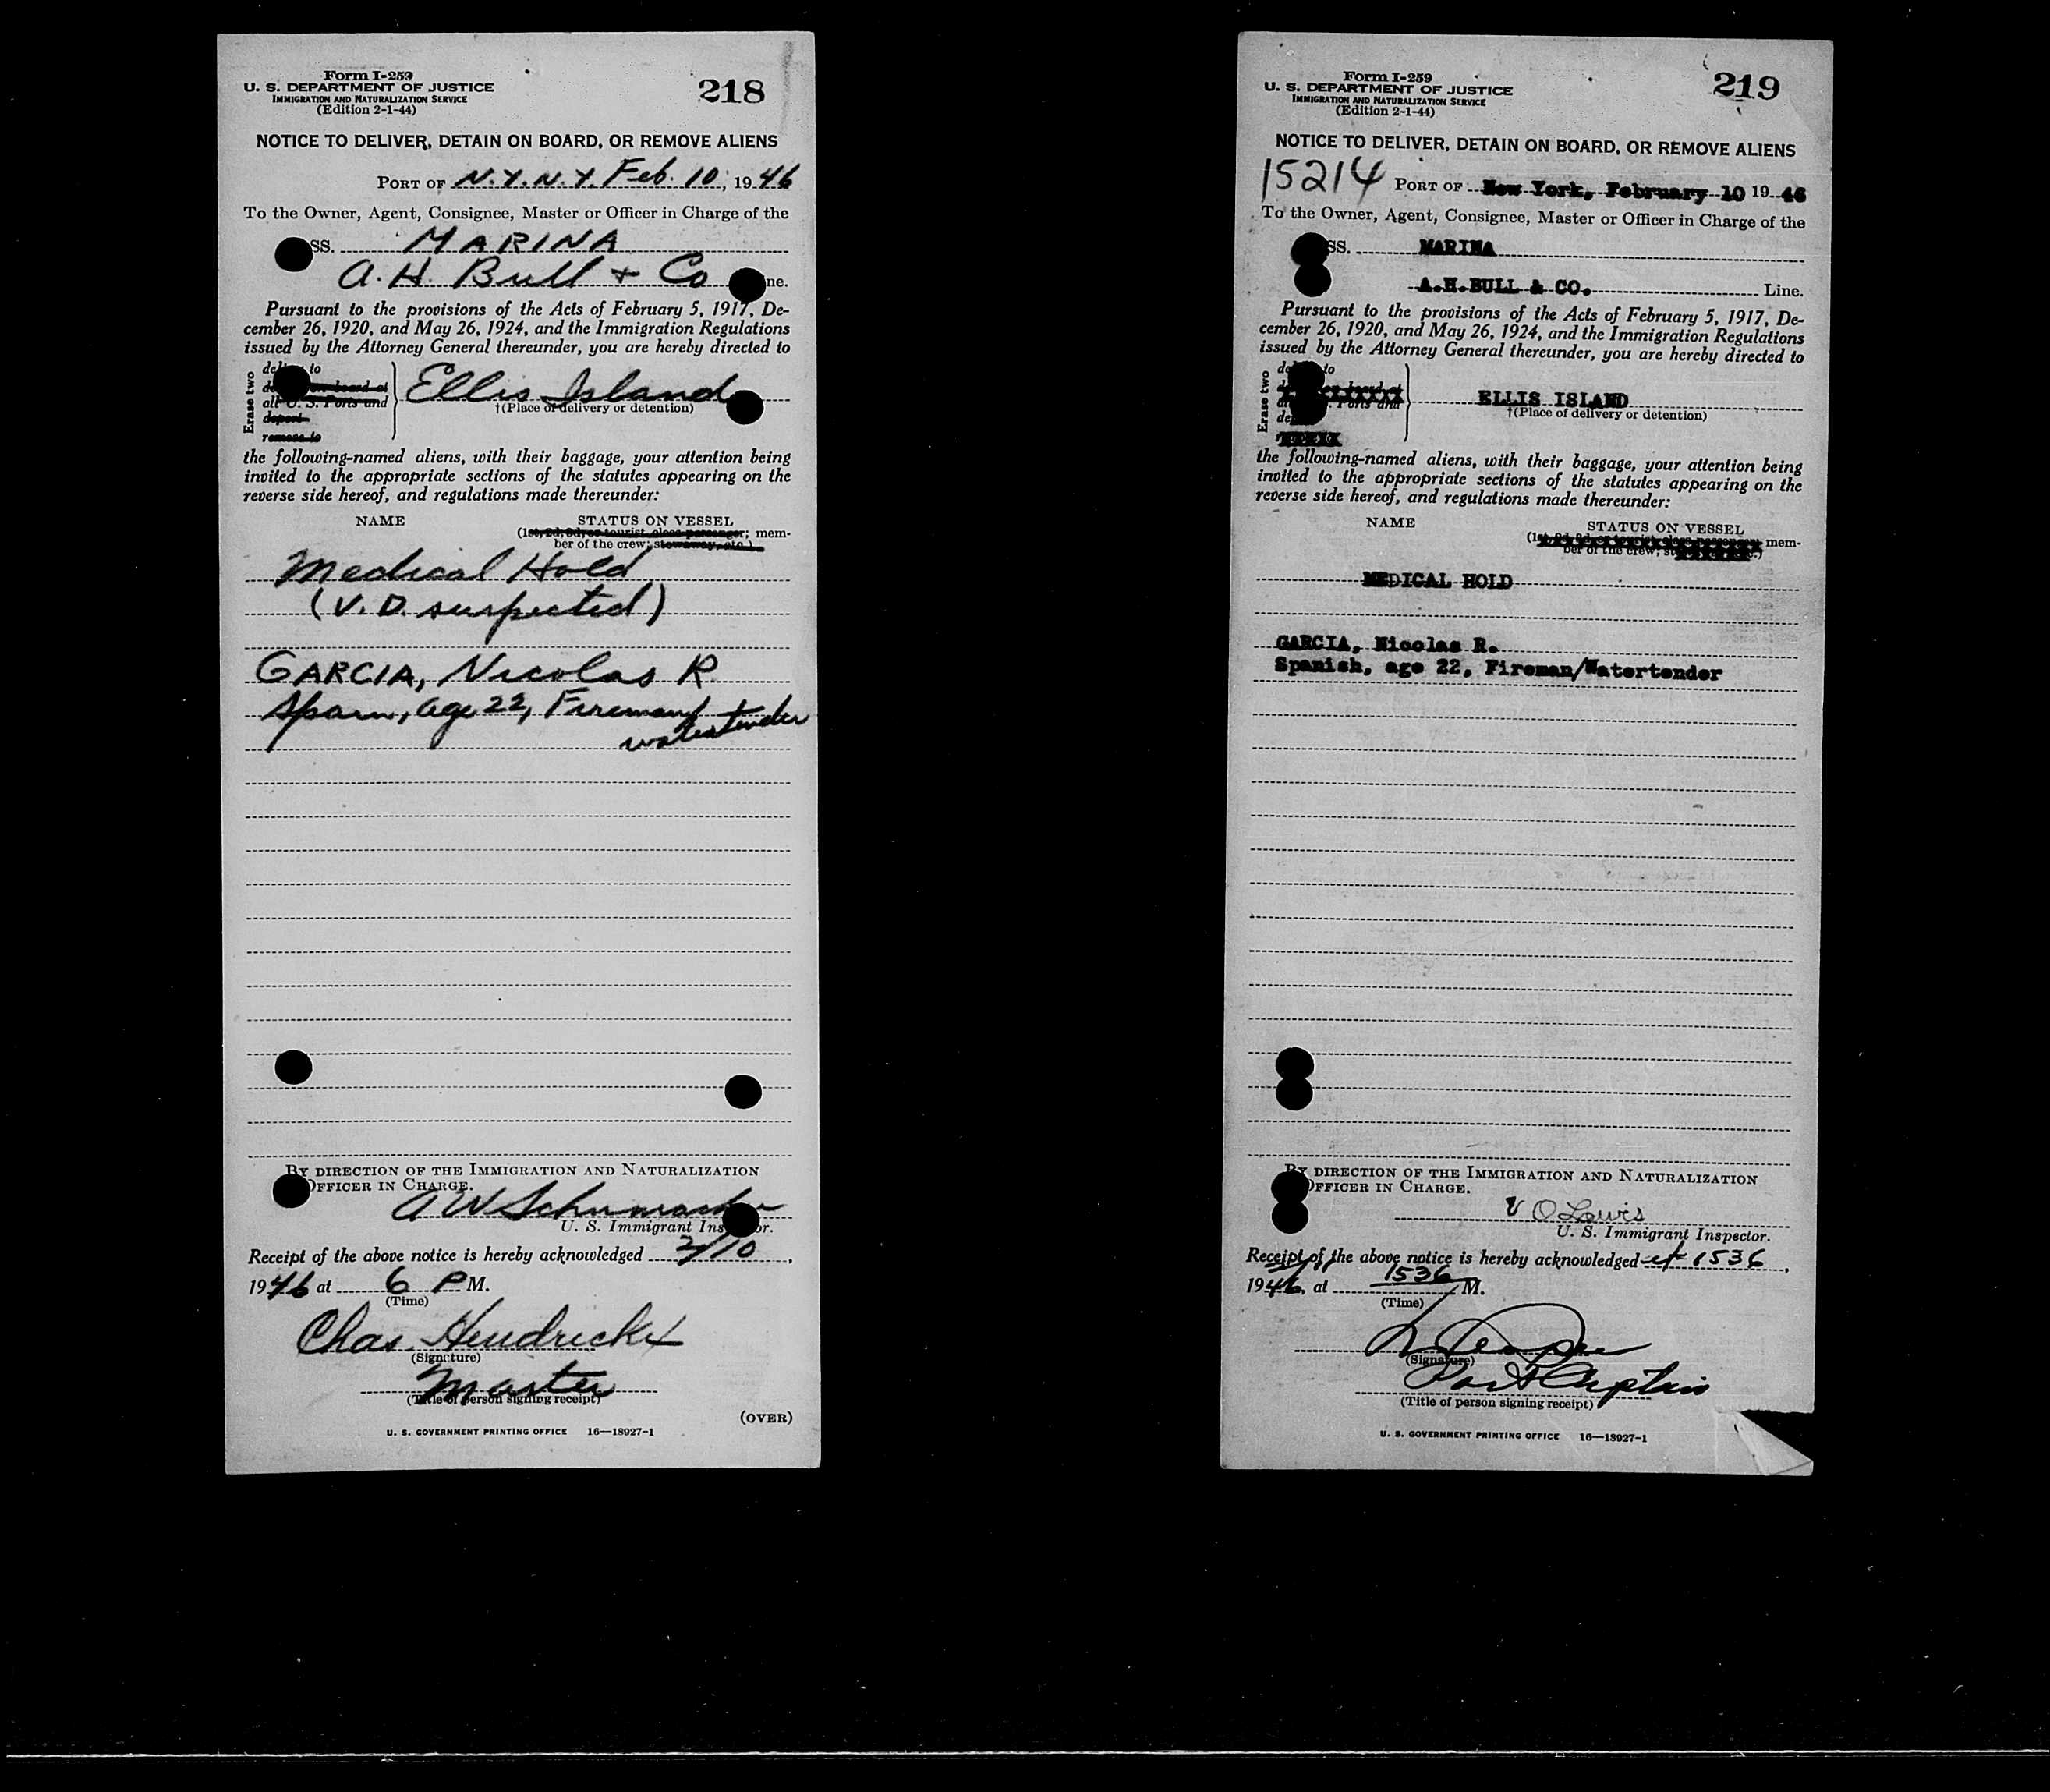 Form I-259
U. S. DEPARTMENT OF JUSTICE
IMMIGRATION AND NATURALIZATION SERVICE
(Edition 2-1-44)
218
NOTICE TO DELIVER, DETAIN ON BOARD, OR REMOVE ALIENS
PORT OF N.Y.N.Y. Feb. 10, 1946
To the Owner, Agent, Consignee, Master or Officer in Charge of the
SS. MARINA
A. H. Bull + Co ne.
Pursuant to the provisions of the Acts of February 5, 1917, De-
cember 26, 1920, and May 26, 1924, and the Immigration Regulations
issued by the Attorney General thereunder, you are hereby directed to
Erase two
to
on board at
all U. S. Ports and
deport
remove to
Ellis Island
†(Place of delivery or detention)
the following-named aliens, with their baggage, your attention being
invited to the appropriate sections of the statutes appearing on the
reverse side hereof, and regulations made thereunder:
NAME STATUS ON VESSEL
(1st, 2d, 3d, or tourist class passenger; mem-
ber of the crew; stowaway, etc.)
Medical Hold
(V.D. suspected)
GARCIA, Nicolas R.
Spain, age 22, Fireman/
watertender
BY DIRECTION OF THE IMMIGRATION AND NATURALIZATION
OFFICER IN CHARGE.
A W Schumacher
U. S. Immigrant Inspector.
Receipt of the above notice is hereby acknowledged 2/10,
1946 at 6 P M.
(Time)
Chas. Hendrickx
(Signature)
Master
(Title of person signing receipt)
(OVER)
U. S. GOVERNMENT PRINTING OFFICE 16—18927-1
Form I-259
U. S. DEPARTMENT OF JUSTICE
IMMIGRATION AND NATURALIZATION SERVICE
(Edition 2-1-44)
219
NOTICE TO DELIVER, DETAIN ON BOARD, OR REMOVE ALIENS
15214 PORT OF New York, February 10 1946
To the Owner, Agent, Consignee, Master or Officer in Charge of the
SS. MARINA
A.H.BULL & CO. Line.
Pursuant to the provisions of the Acts of February 5, 1917, De-
cember 26, 1920, and May 26, 1924, and the Immigration Regulations
issued by the Attorney General thereunder, you are hereby directed to
Erase two
to
on board at
Ports and
ELLIS ISLAND
†(Place of delivery or detention)
the following-named aliens, with their baggage, your attention being
invited to the appropriate sections of the statutes appearing on the
reverse side hereof, and regulations made thereunder:
NAME STATUS ON VESSEL
(1st, 2d, 3d, or tourist class passenger; mem-
ber of the crew;
MEDICAL HOLD
GARCIA, Nicolas R.
Spanish, age 22, Fireman/Watertender
BY DIRECTION OF THE IMMIGRATION AND NATURALIZATION
OFFICER IN CHARGE.
V O Lewis
U. S. Immigrant Inspector.
Receipt of the above notice is hereby acknowledged at 1536,
1946, at 1536 M.
(Time)
(Signature)
Port Captain
(Title of person signing receipt)
U. S. GOVERNMENT PRINTING OFFICE 16—18927-1